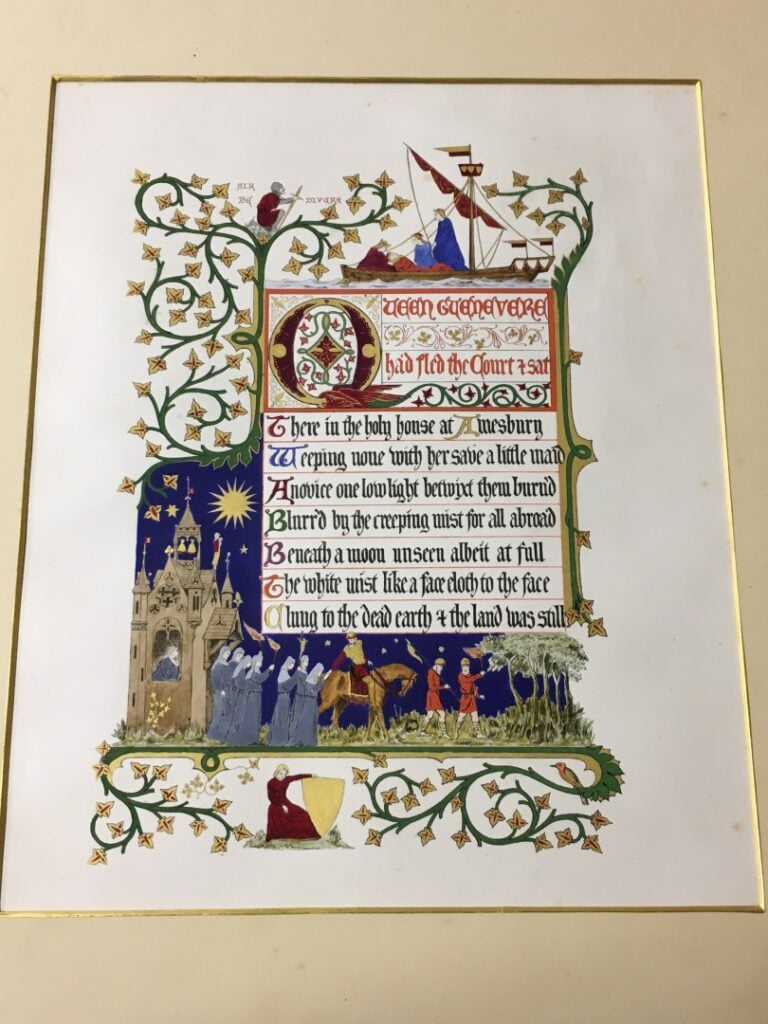 SIR
BE DIVERE
QUEEN GUENEVERE
had fled the Court & sat
There in the holy house at Amesbury
Weeping none with her save a little maid
A novice one low light betwixt them burn'd
Blurr'd by the creeping mist for all abroad
Beneath a moon unseen albeit at full
The white mist like a face cloth to the face
Clung to the dead earth & the land was still